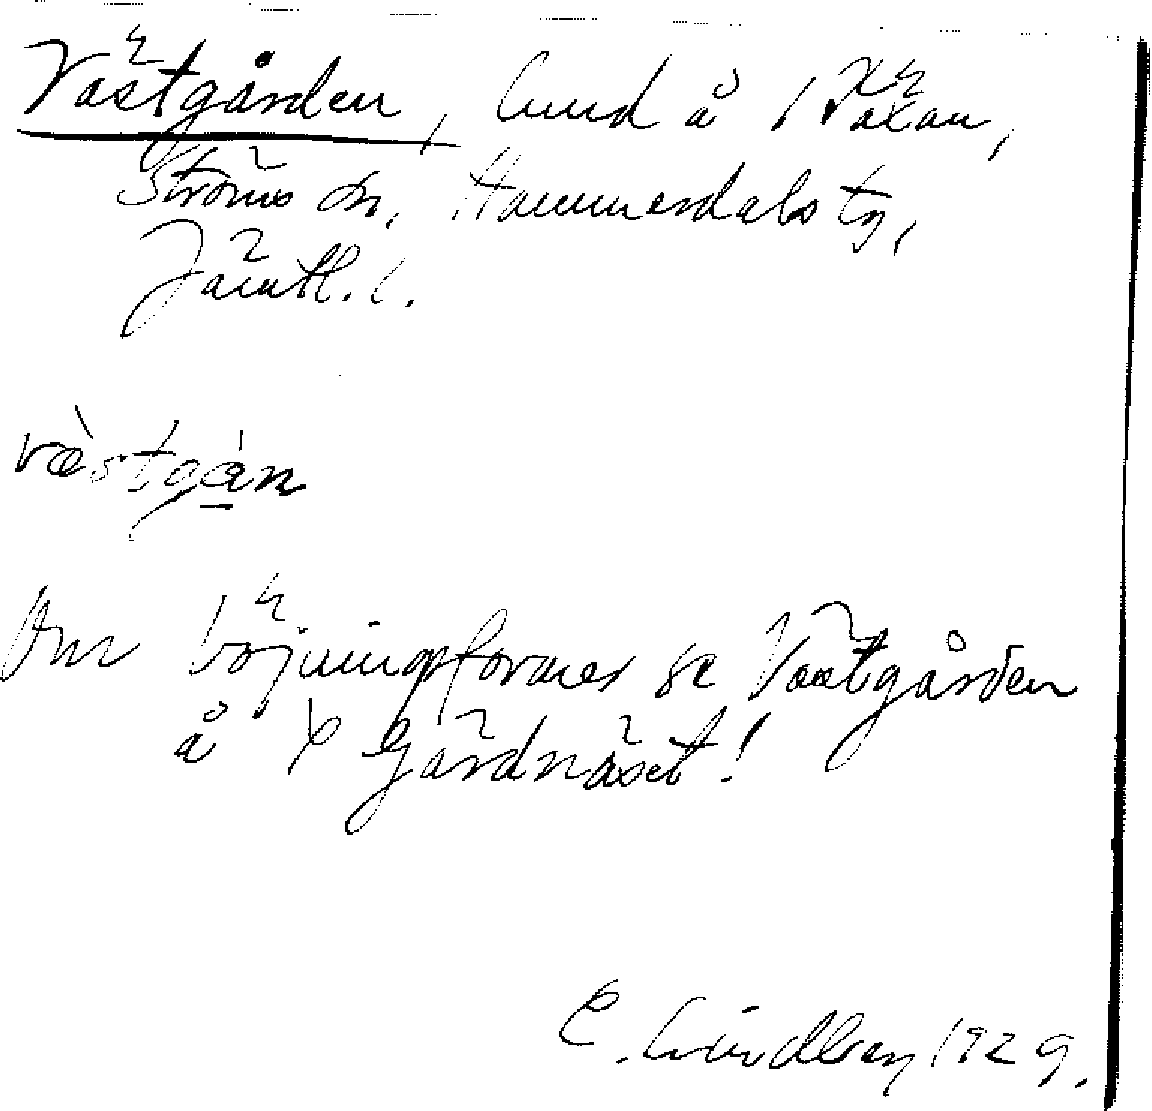 Västgården, å
Ströms sn, Hammerdals tg,
Jämtl. l.
væ̀stgàn
Om böjningsformer se Västgården
å Gärdnäset!
E. Lindberg 1929.